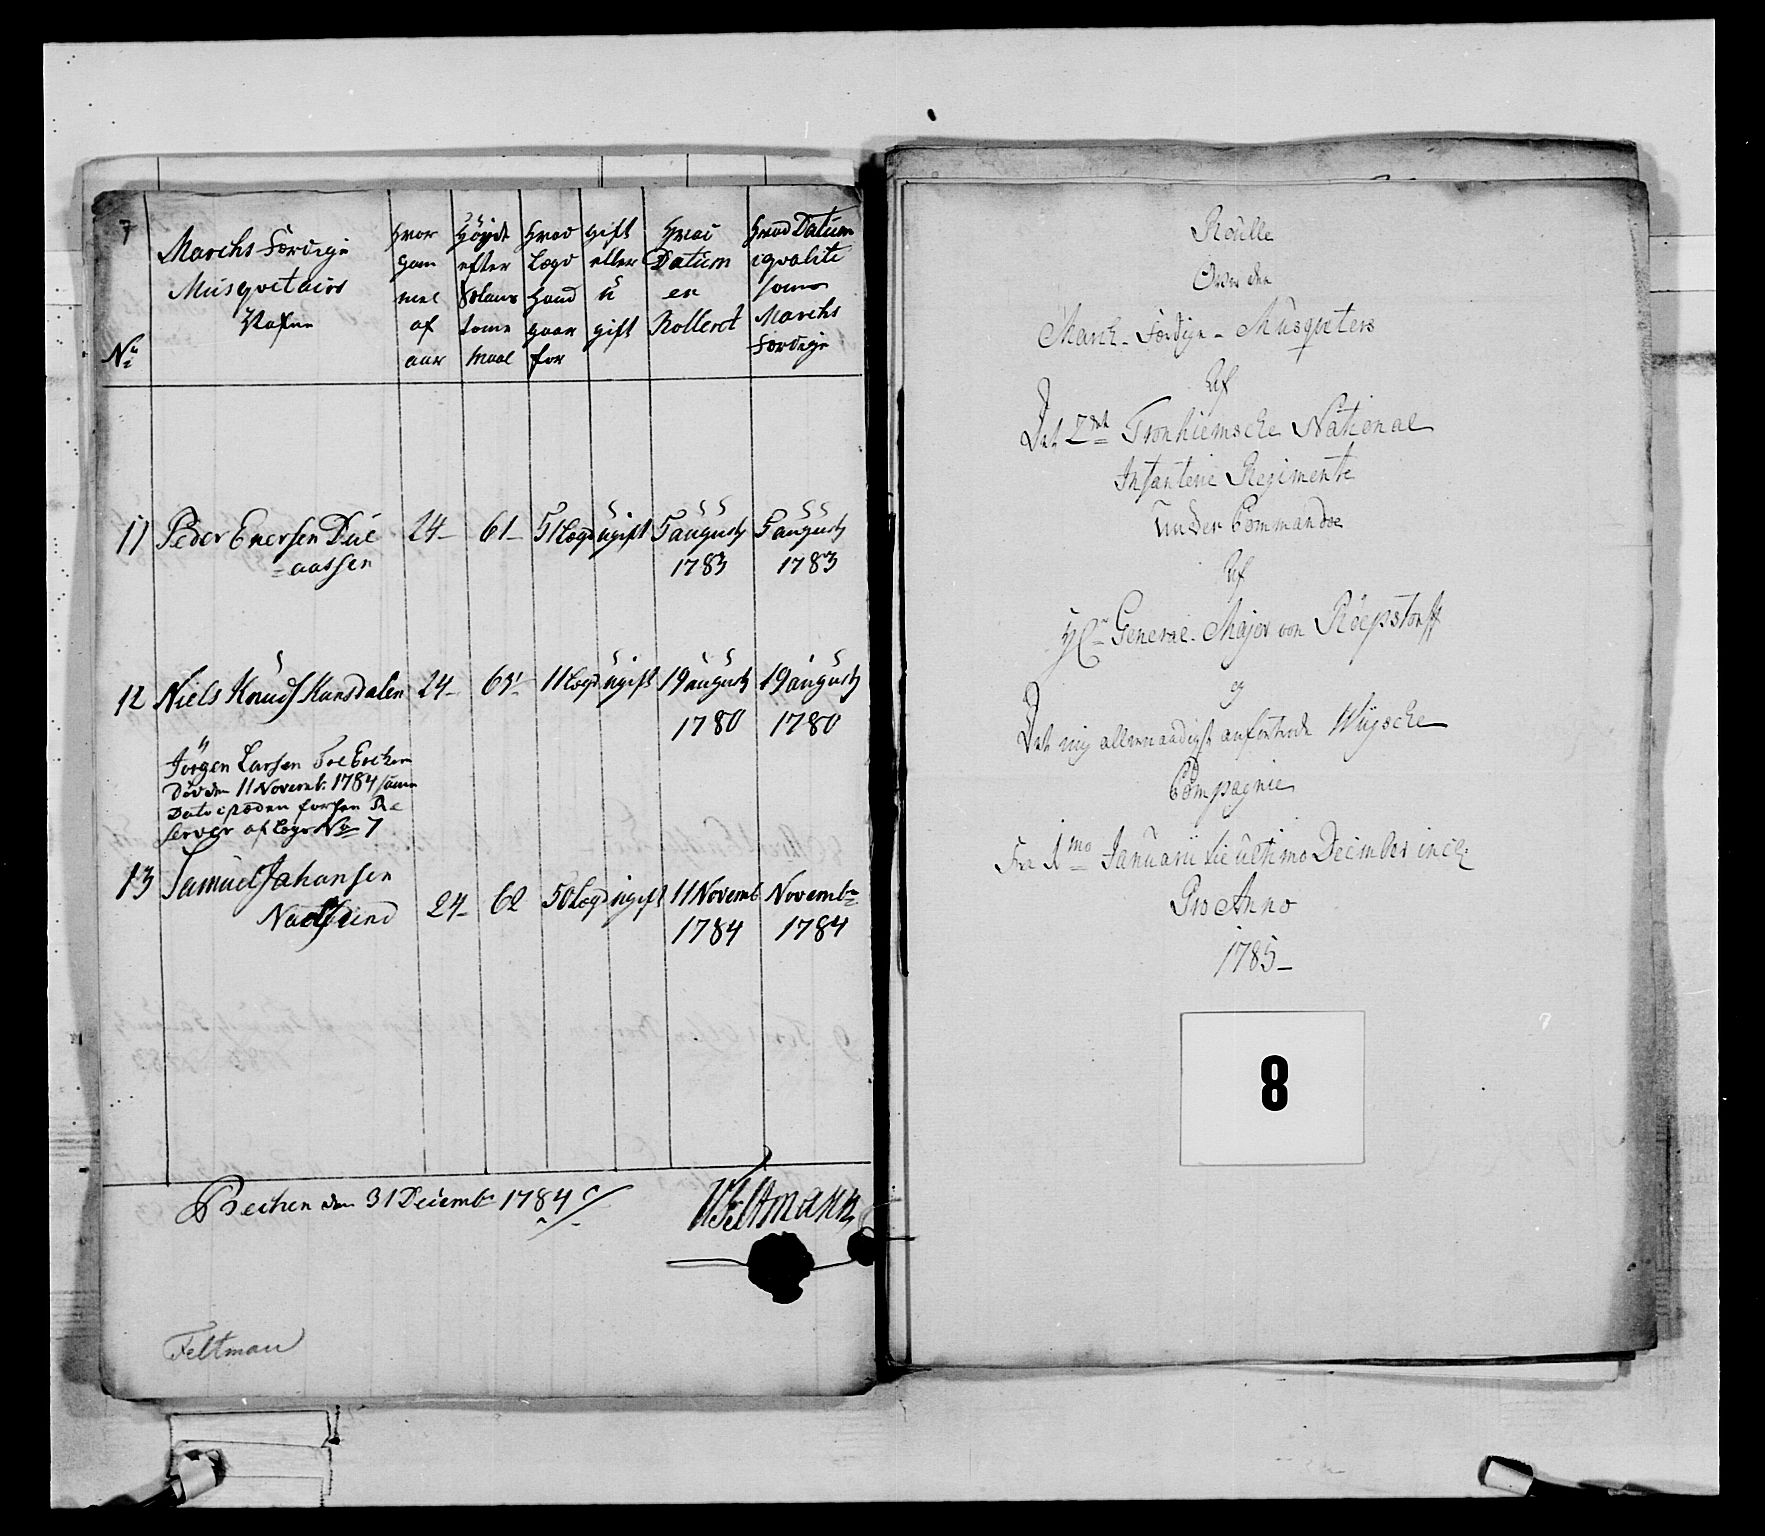 7
No
Marchs Færdige
Musqvetairs
Nafne
hvor
gam
mel
af
aar
Höyde
efter
tome
Maal
hvad
Lægd
hand
gaar
for
gift
eller
u
gift
hvad
Datum
er
Rolleret
hvad Datum
i qvalite
som
Marchs
Færdige
11 Peder Enersen Due
=aassen
24 - 61 - 51 Lægd ugift 5 august 5 august
1783 1783
12 Niels Knuds 24 - 11 Lægd ugift 19 august 19 august
1780 1780
Jörgen Larsen
Död den 11 Novemb: 1784 samme
Dato i stæden forsen Re
server af Lægd No 7
13 Samuel Johansen
24 - 62 50 Lægd ugift 11 Novemb Novembr
1784 1784
den 31 Decembr 1784
WFeltmann
Feltman
Roulle
Over den
March-Færdige-Musqueters
Af
Det 2det Tronhiemsche National
Infanterie Regimente
Under Commandoe
Af
Hr General-Major von Röepstorff
og
Det mig allernaadigst anfortroede Wügsche
Compagnie
Fra 1mo Januarii til ultimo December incl:
Pro Anno
1785-
8